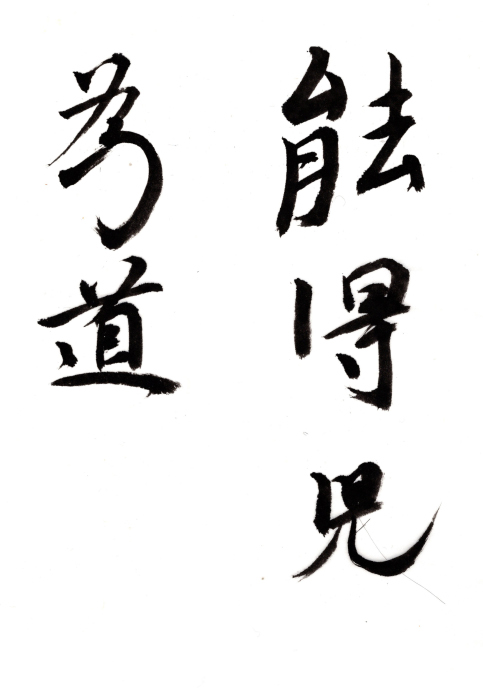 能得児
為道